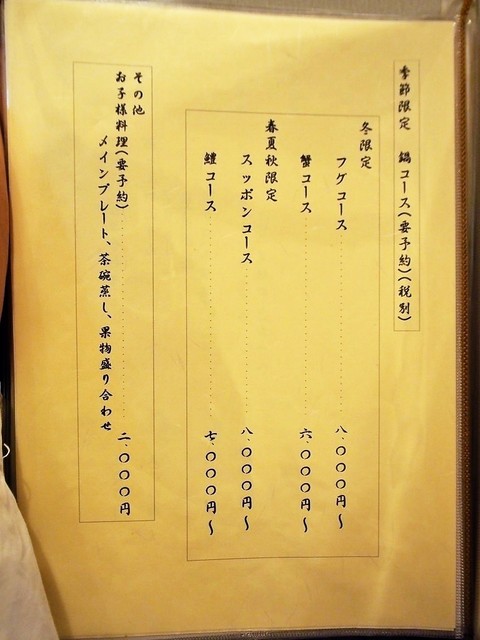 季節限定　鍋コース(要予約)(税別)
冬限定
フグコース 八、〇〇〇円〜
蟹コース 六、〇〇〇円〜
春夏秋限定
スッポンコース 八、〇〇〇円〜
鱧コース 七、〇〇〇円〜
その他
お子様料理(要予約) 二、〇〇〇円
メインプレート、茶碗蒸し、果物盛り合わせ